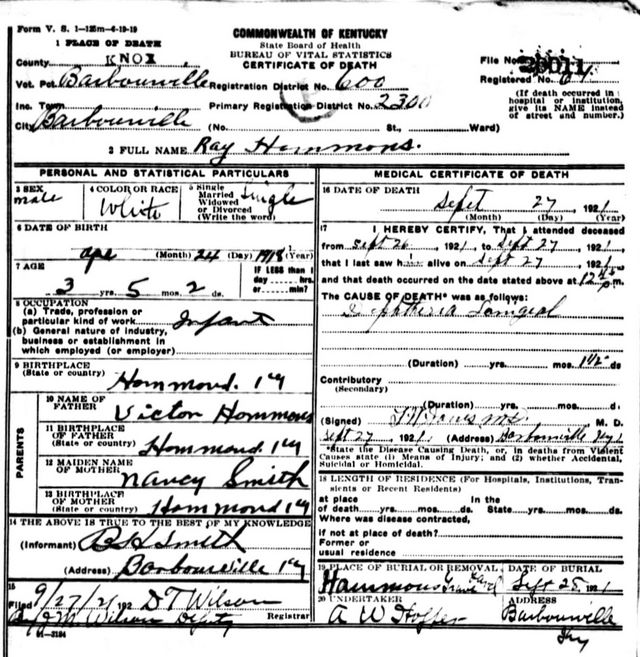 Form V. S. 1-125m-4-19-19
COMMONWEALTH OF KENTUCKY
State Board of Health
BUREAU OF VITAL STATISTICS
CERTIFICATE OF DEATH
1 PLACE OF DEATH
County KNOX
Vot. Pct. Barbourville
Inc. Town
City Barbourville
Registration District No. 600
Primary Registration District No. 2300
(No. St., Ward)
File No.
Registered No.
(If death occurred in
hospital or institution,
give its NAME instead
of street and number.)
2 FULL NAME Ray Hammons.
PERSONAL AND STATISTICAL PARTICULARS
3 SEX male
4 COLOR OR RACE White
5 Single
Married
Widowed
or Divorced
(Write the word) Single
6 DATE OF BIRTH
Ape (Month) 24 (Day) 1918 (Year)
7 AGE
3 yrs. 5 mos. 2 ds.
IF LESS than 1
day hrs.
or min?
8 OCCUPATION
(a) Trade, profession or
particular kind of work Infant
(b) General nature of industry,
business or establishment in
which employed (or employer)
9 BIRTHPLACE
(State or country) Hammond. Ky
PARENTS
10 NAME OF
FATHER Victor Hammons
11 BIRTHPLACE
OF FATHER
(State or country) Hammond Ky
12 MAIDEN NAME
OF MOTHER Nancy Smith
13 BIRTHPLACE
OF MOTHER
(State or country) Hammond Ky
14 THE ABOVE IS TRUE TO THE BEST OF MY KNOWLEDGE
(Informant) B H Smith
(Address) Barbourville Ky
15
Filed 9/27/21 192 D T Wilson
Registrar
By J M Wilson Deputy
11-3184
MEDICAL CERTIFICATE OF DEATH
16 DATE OF DEATH
Sept 27 1921
(Month) (Day) (Year)
17 I HEREBY CERTIFY, That I attended deceased
from Sept 26, 1921, to Sept 27, 1921
that I last saw him alive on Sept 27, 1921
and that death occurred on the date stated above at 12 m.
The CAUSE OF DEATH* was as follows:
Diphtheria
(Duration) yrs. mos. 1½ ds.
Contributory
(Secondary)
(Duration) yrs. mos. d.
(Signed) M. D.
Sept 27, 1921. (Address) Barbourville Ky
*State the Disease Causing Death, or, in deaths from Violent
Causes state (1) Means of Injury; and (2) whether Accidental,
Suicidal or Homicidal.
18 LENGTH OF RESIDENCE (For Hospitals, Institutions, Transients
or Recent Residents)
at place In the
of death yrs. mos. ds. State yrs. mos. ds.
Where was disease contracted,
if not at place of death?
Former or
usual residence
19 PLACE OF BURIAL OR REMOVAL
Hammons Grave Yard
DATE OF BURIAL
Sept 28, 1921
20 UNDERTAKER
A W Hopper
ADDRESS
Barbourville
Ky